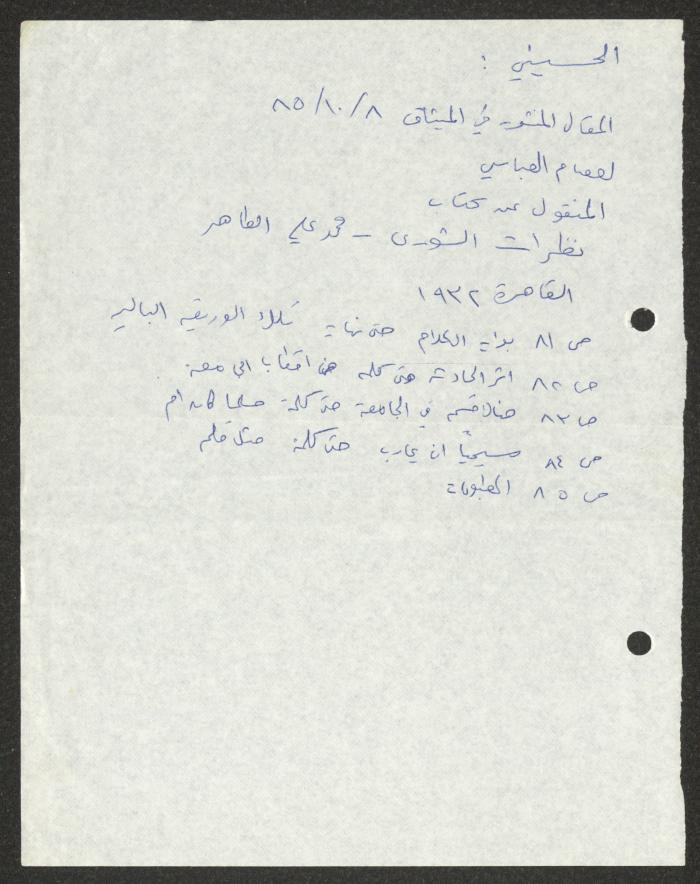 الحسيني :
المقال المنشور في الميثاق ٨ /١٠/ ٨٥
لعصام العباسي
المنقول عن كتاب
نظرات الشورى – محمد علي الطاهر
القاهرة ١٩٣٢
ص ٨١ بداية الكلام حتى نهاية تلك الوريقة البالية
ص ٨٢ اثر الحادثة حتى كلمة من اقطاب الجامعة
ص ٨٣ مناقضة في الجامعة حتى كلمة مسلما كان ام
ص ٨٤ مسيحياً ان يحارب حتى كلمة مثل قلم
ص ٨٥ المطبوعات